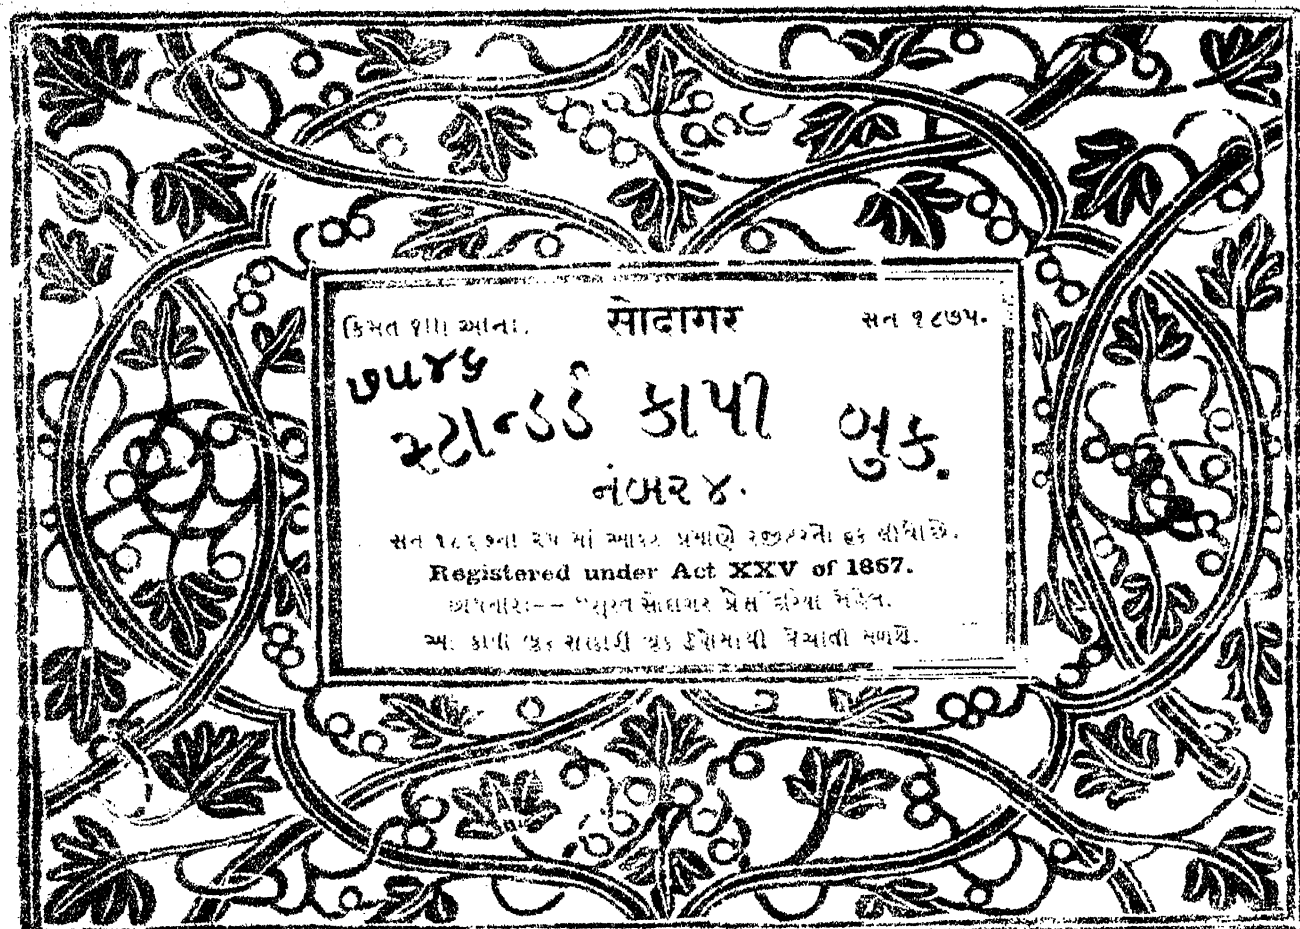 કિંમત ૧ાાા આના. સોદાગર સન ૧૮૭૫.
૭૫૪૬
સ્ટાન્ડર્ડ કાપી બુક.
નંબર ૪.
સન ૧૮૬૭ના ૨૫ માં આકટ પ્રમાણે રજીસ્ટરનો હક લીધોછે.
Registered under Act XXV of 1867.
છાપનારા-- "સુરત સોદાગર પ્રેસ" દરિયા મેહેલ.
આ કાપી બુક સરકારી બુક ડીપોમાંથી વેચાતી મળશે.